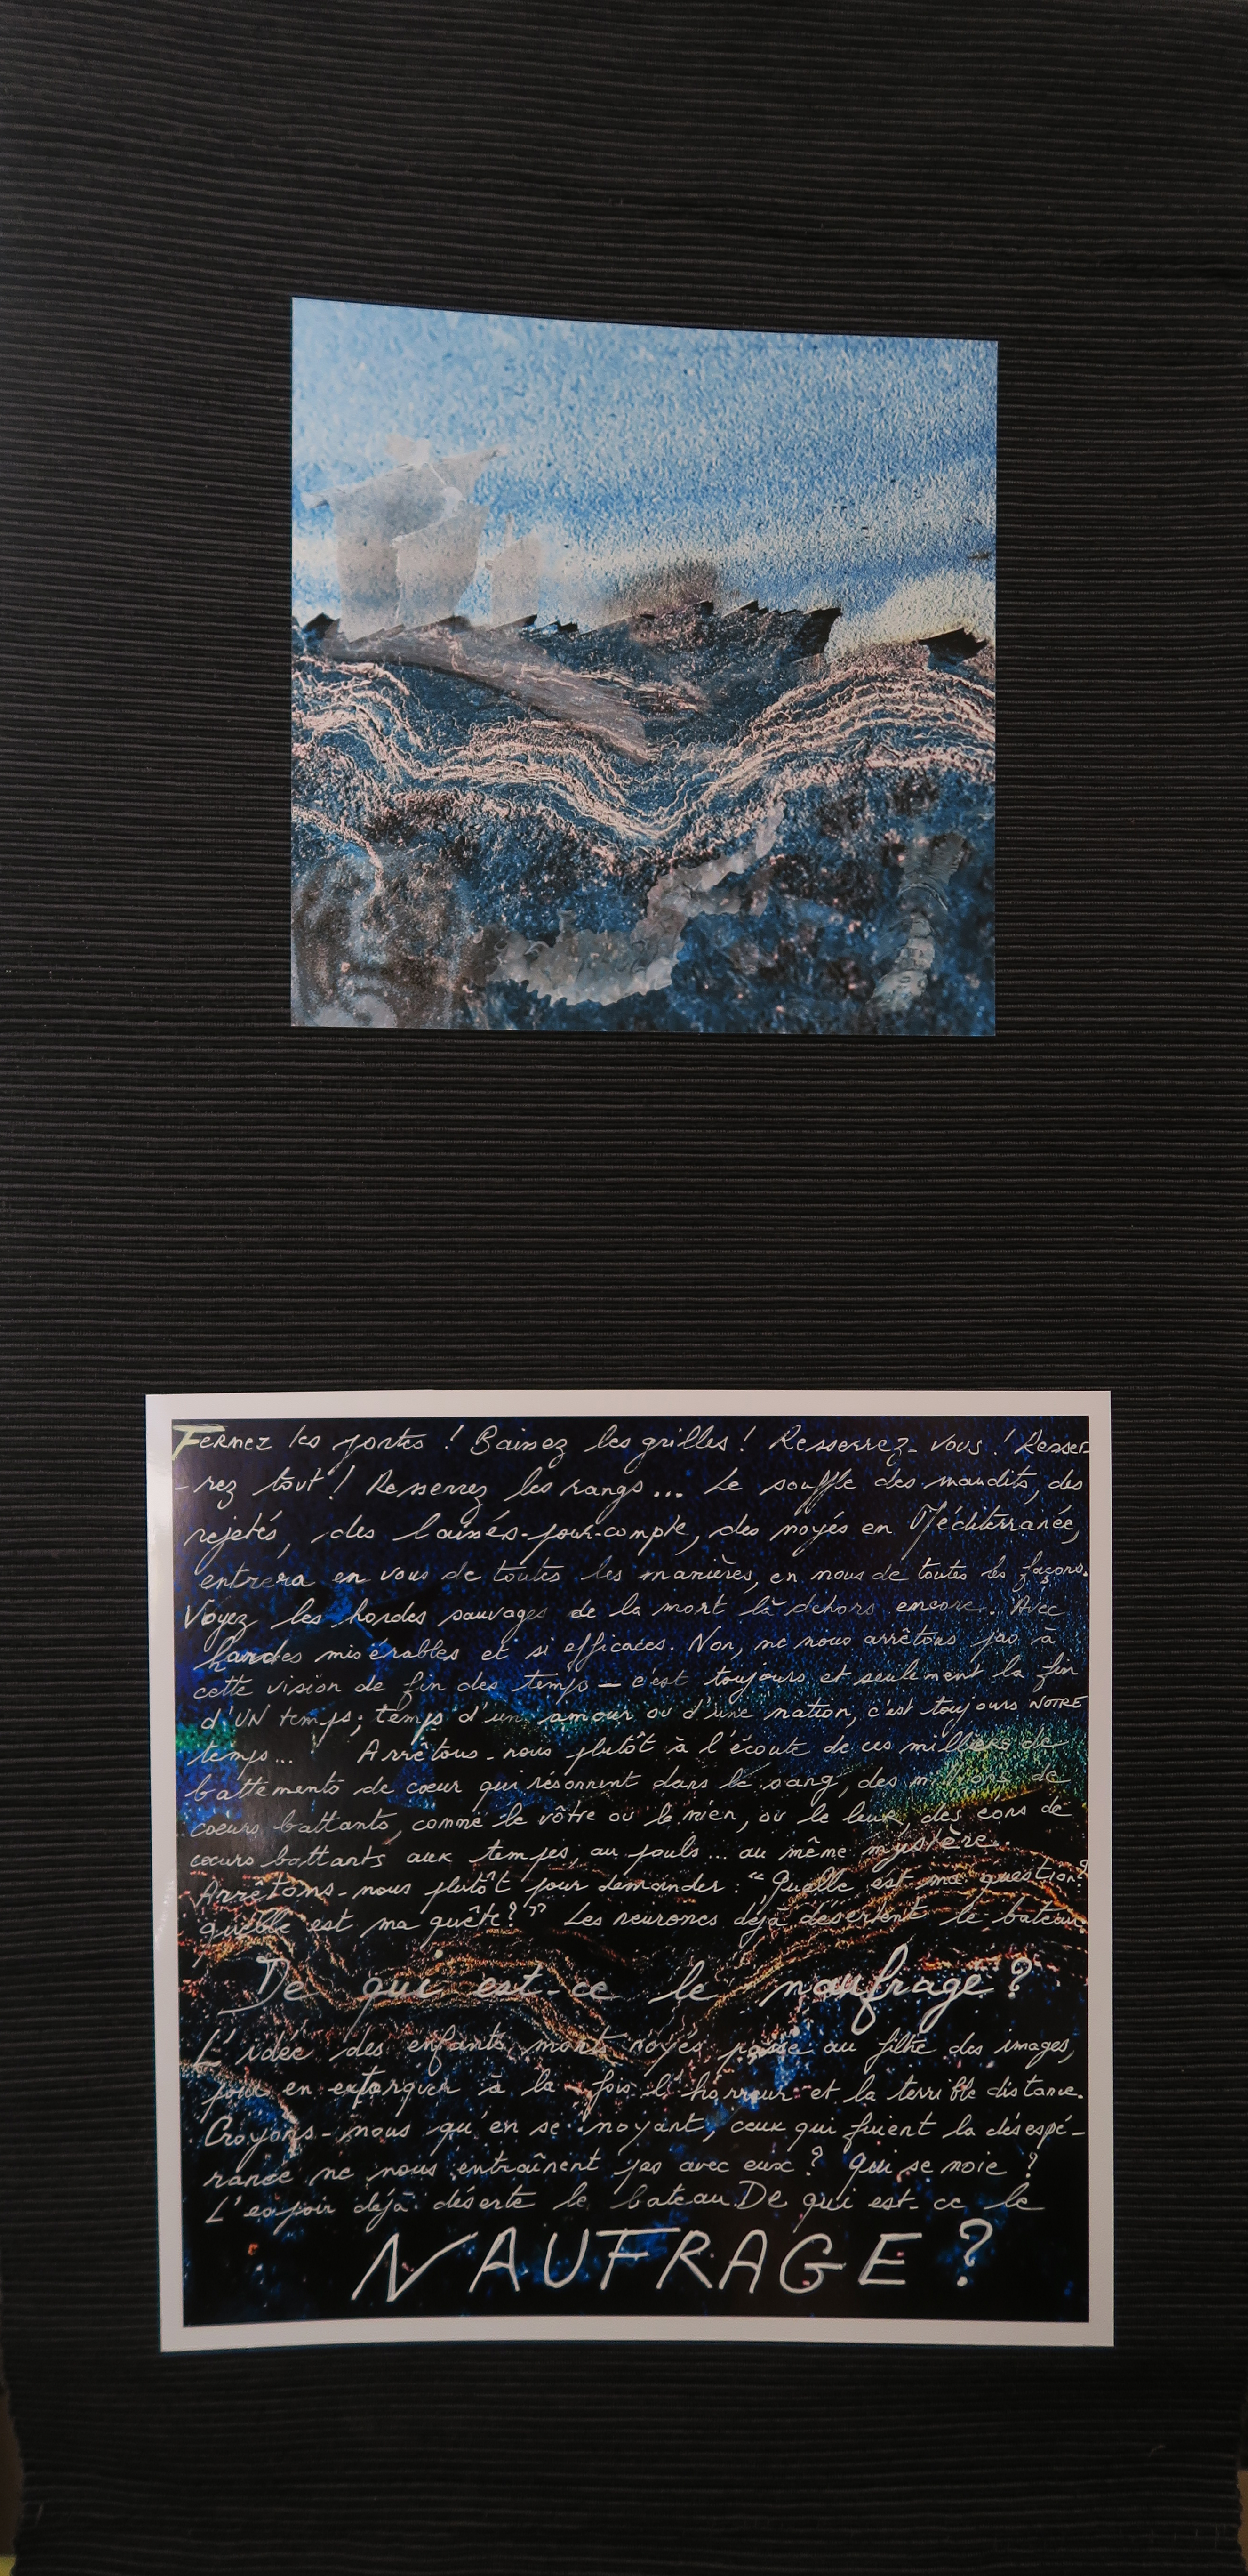 Fermez les portes ! Baissez les grilles ! Resserrez-vous ! Resser-
-rez tout ! Resserrez les rangs... Le souffle des maudits, des
rejetés, des laissés-pour-compte, des noyés en Méditerranée,
entrera en vous de toutes les manières, en nous de toutes les façons.
Voyez les hordes sauvages de la mort là dehors encore. Avec
hardes misérables et si efficaces. Non, ne nous arrêtons pas à
cette vision de fin des temps — c'est toujours et seulement la fin
d'UN temps ; temps d'un amour ou d'une nation, c'est toujours NOTRE
temps... Arrêtons-nous plutôt à l'écoute de ces milliers de
battements de cœur qui résonnent dans le sang, des millions de
cœurs battants, comme le vôtre ou le mien, ou le leur, des eons de
cœurs battants aux tempes, au pouls... au même mystère.
Arrêtons-nous plutôt pour demander : "Quelle est ma question ?
quelle est ma quête ?" Les neurones déjà désertent le bateau.
De qui est-ce le naufrage ?
L'idée des enfants morts noyés passe au filtre des images,
pour en extorquer à la fois l'horreur et la terrible distance.
Croyons-nous qu'en se noyant, ceux qui fuient la désespé-
rance ne nous entraînent pas avec eux ? Qui se noie ?
L'espoir déjà déserte le bateau. De qui est-ce le
NAUFRAGE ?